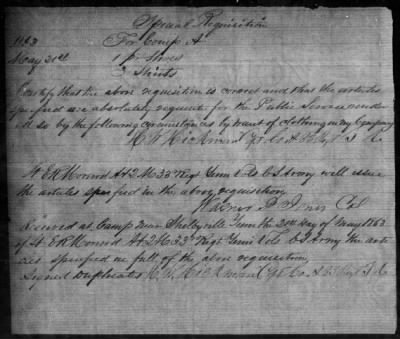 Special Requisition
1863 For Comp. A
May 20th 1 pr Shoes
2 Shirts
I certify that the above requisition is correct and that the articles
specified are absolutely requisite for the Public Service render
ed so by the following circumstances by want of clothing in my Company
H. W. Hickman Capt Co. A
Lt E R Monrid A 2 M 33rd Regt Tenn Vols C S Army will issue
the articles specified in the above requisition
Jones Col
Received at Camp near Shelbyville Tenn the 20th day of May 1863
of Lt E R Monrid A 2 M 33rd Regt Tenn Vols C S Army the arti
cles specified in full of the above requisition
Signed Duplicates H. W. Hickman Capt Co. A